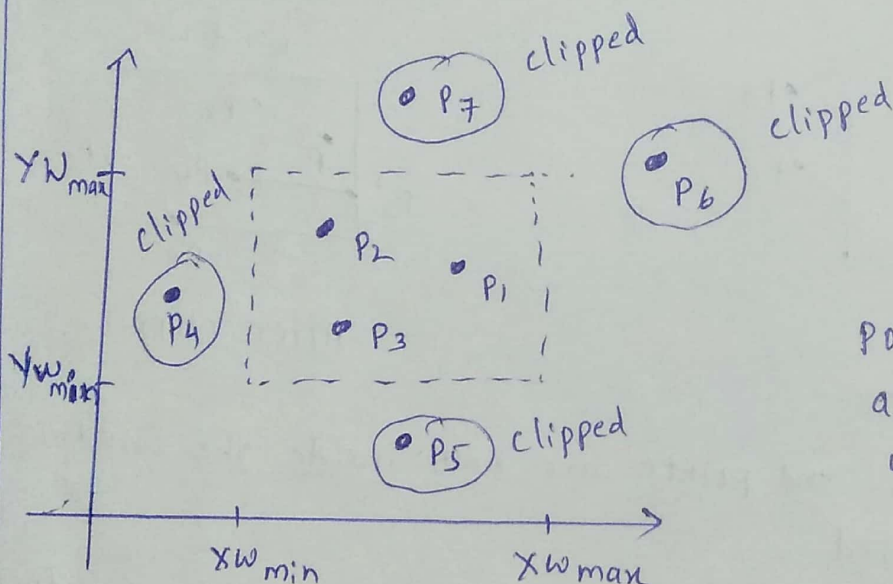 clipped
P7
clipped
YWmax
P6
clipped
P2
P1
P4
P3
YWmin
P5 clipped
XWmin
XWmax